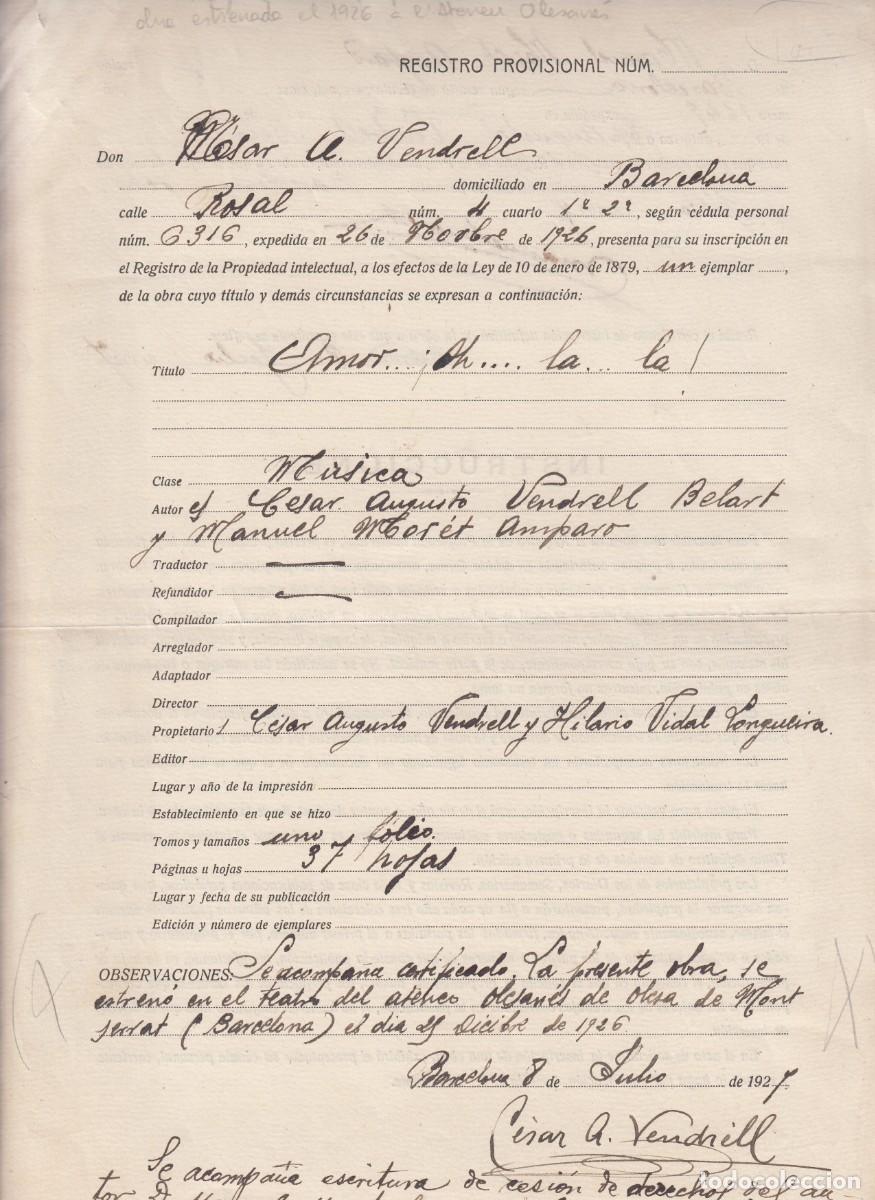 obra estrenada el 1926 a l'Ateneu Olesanés
REGISTRO PROVISIONAL NÚM.
Don César A. Vendrell
domiciliado en Barcelona
calle Rosal núm. 4 cuarto 1º 2ª, según cédula personal
núm. 6316, expedida en 26 de Novbre de 1926, presenta para su inscripción en
el Registro de la Propiedad intelectual, a los efectos de la Ley de 10 de enero de 1879, un ejemplar,
de la obra cuyo título y demás circunstancias se expresan a continuación:
Título Amor... ¡Oh.... la... la!
Clase Música
Autor es César Augusto Vendrell Belart
y Manuel Morét Amparo
Traductor
Refundidor
Compilador
Arreglador
Adaptador
Director
Propietario s César Augusto Vendrell y Hilario Vidal Longueira.
Editor
Lugar y año de la impresión
Establecimiento en que se hizo
Tomos y tamaños uno fólio.
Páginas u hojas 37 hojas
Lugar y fecha de su publicación
Edición y número de ejemplares
OBSERVACIONES: Se acompaña certificado. La presente obra, se
estrenó en el teatro del aténeo olesanés de Olesa de Mont
serrat (Barcelona) el dia 25 Dicibre de 1926
Barcelona 8 de Julio de 1927.
César A. Vendrell
Se acompaña escritura de cesión de derechos del au
tor D.
todocoleccion